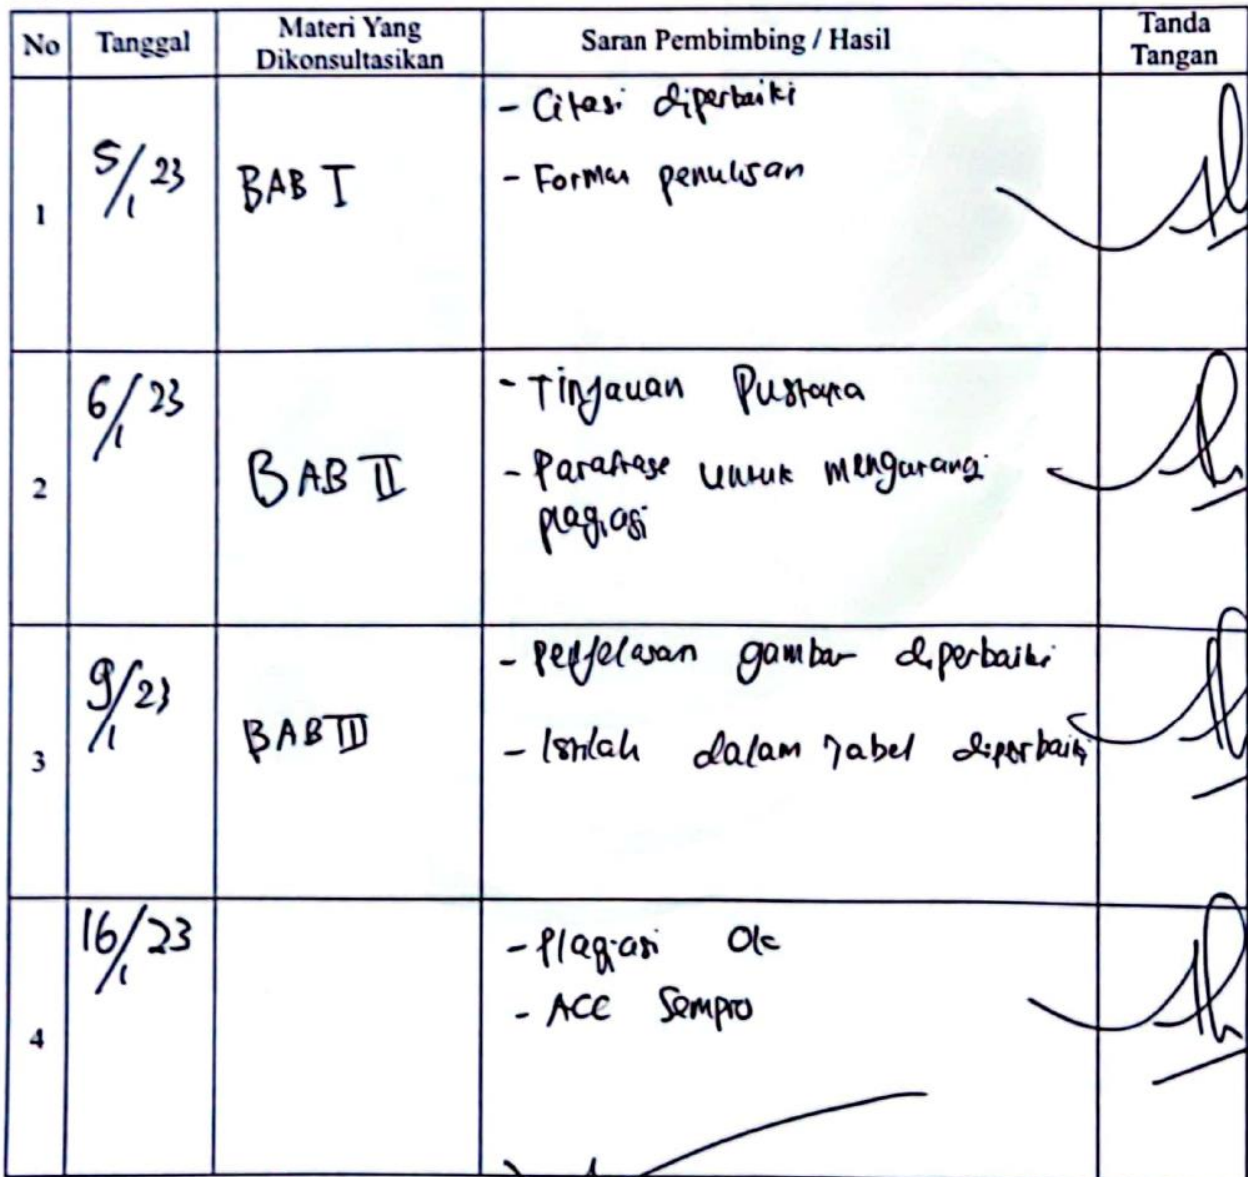 No Tanggal Materi Yang Dikonsultasikan Saran Pembimbing / Hasil Tanda Tangan
1 5/1 23 BAB I - Citasi diperbaiki
- Format penulisan
2 6/1 23 BAB II - Tinjauan Pustaka
- Parafrase untuk mengurangi
plagiasi
3 9/1 23 BAB III - penjelasan gambar diperbaiki
- Istilah dalam tabel diperbaiki
4 16/1 23 - Plagiasi Ok
- ACC Sempro